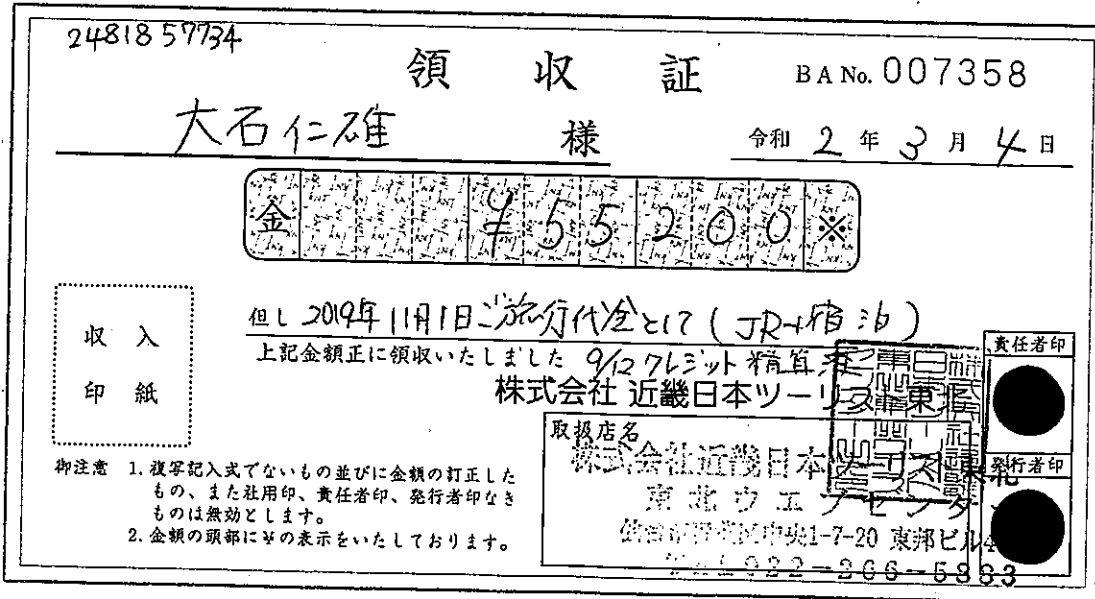 2481857734
領 収 証
BA No. 007358
大石仁雄 様
令和 2 年 3 月 4 日
金 ¥55200※
但し 2019年11月1日ご旅行代金として(JR+宿泊)
上記金額正に領収いたしました 9/12 クレジット精算済
株式会社 近畿日本ツーリスト東北
収 入
印 紙
責任者印
取扱店名
株式会社近畿日本ツーリスト東北
東北ウエブセンター
中央1-7-20 東邦ビル4
022-266-5883
発行者印
御注意 1. 複写記入式でないもの並びに金額の訂正した
もの、また社用印、責任者印、発行者印なき
ものは無効とします。
2. 金額の頭部に¥の表示をいたしております。